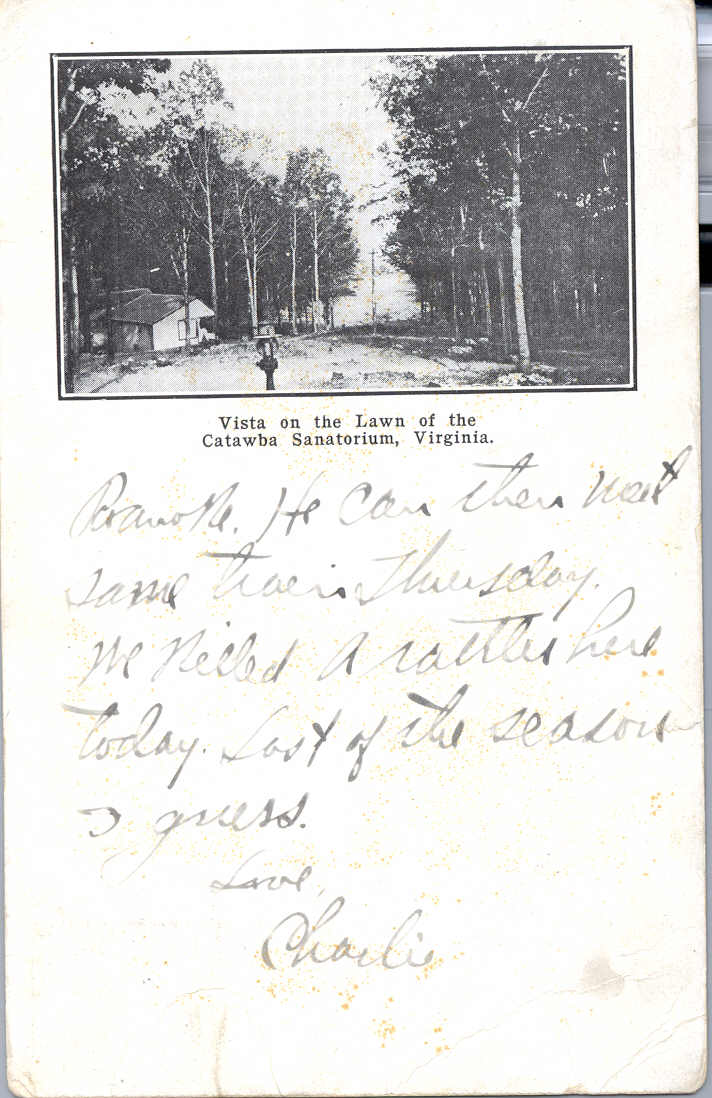 Vista on the Lawn of the
Catawba Sanatorium, Virginia.
Roanoke. He can then meet
same train Thursday.
We killed A rattler here
today. Last of the season
I guess.
Love,
Charlie